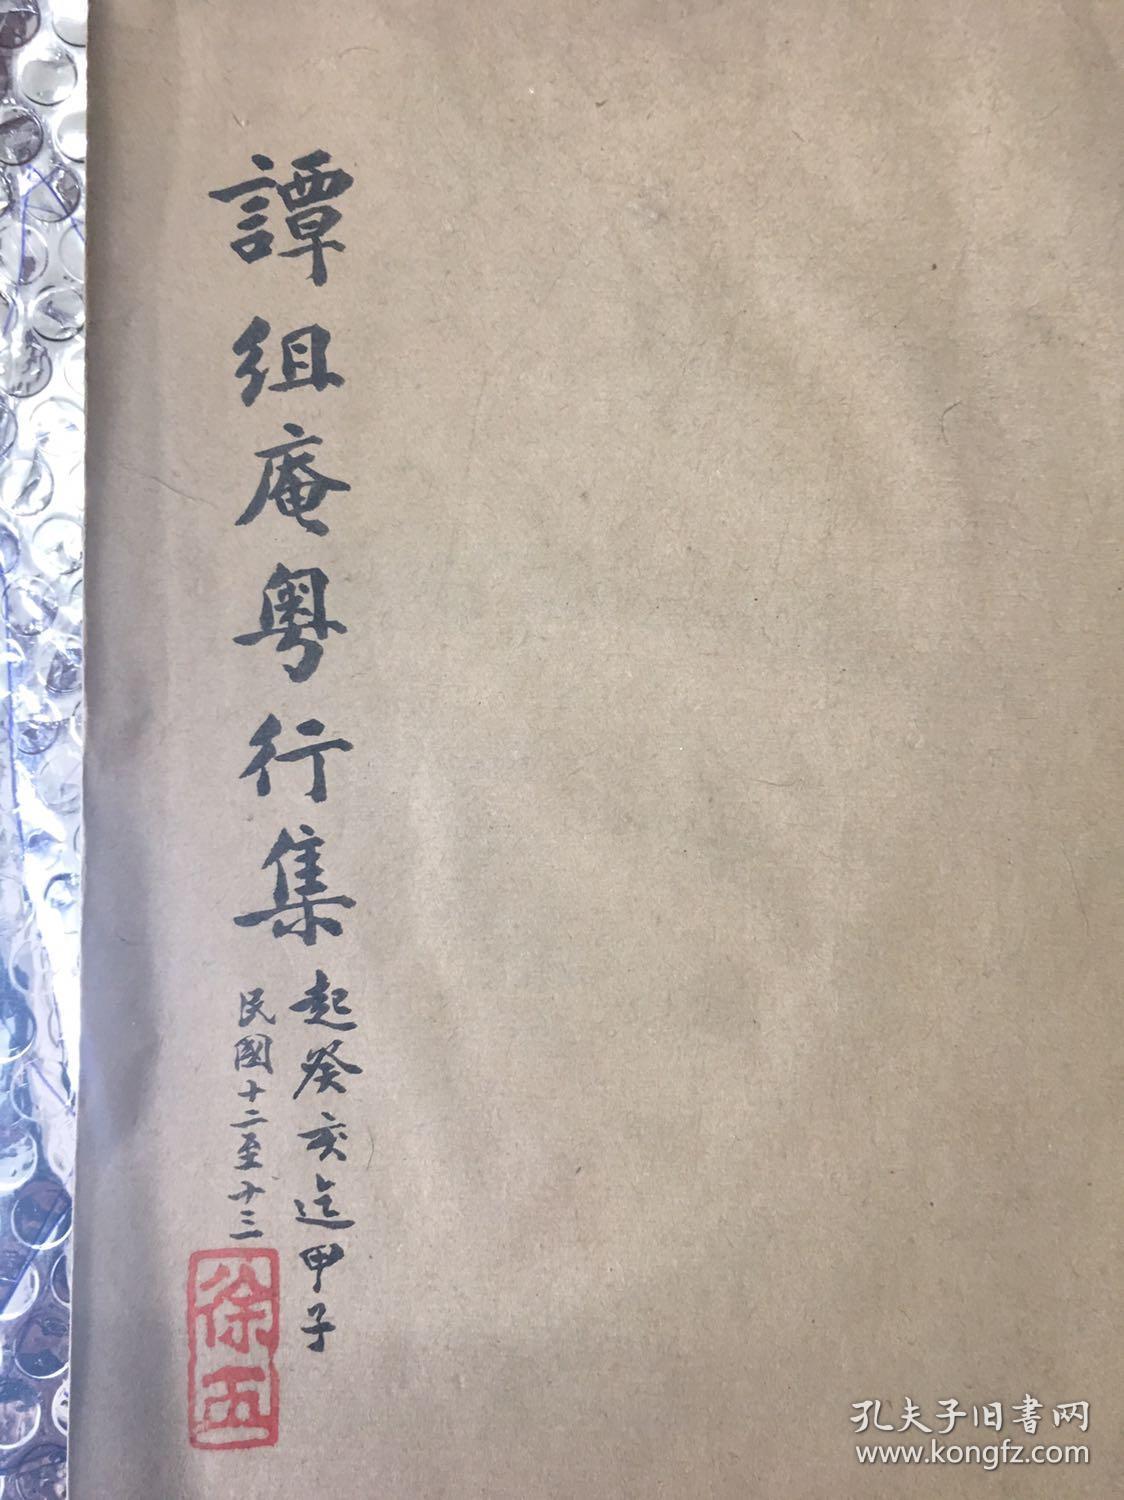 譚組庵粤行集
起癸亥迄甲子
民國十二至十三
徐五
孔夫子旧書网
www.kongfz.com